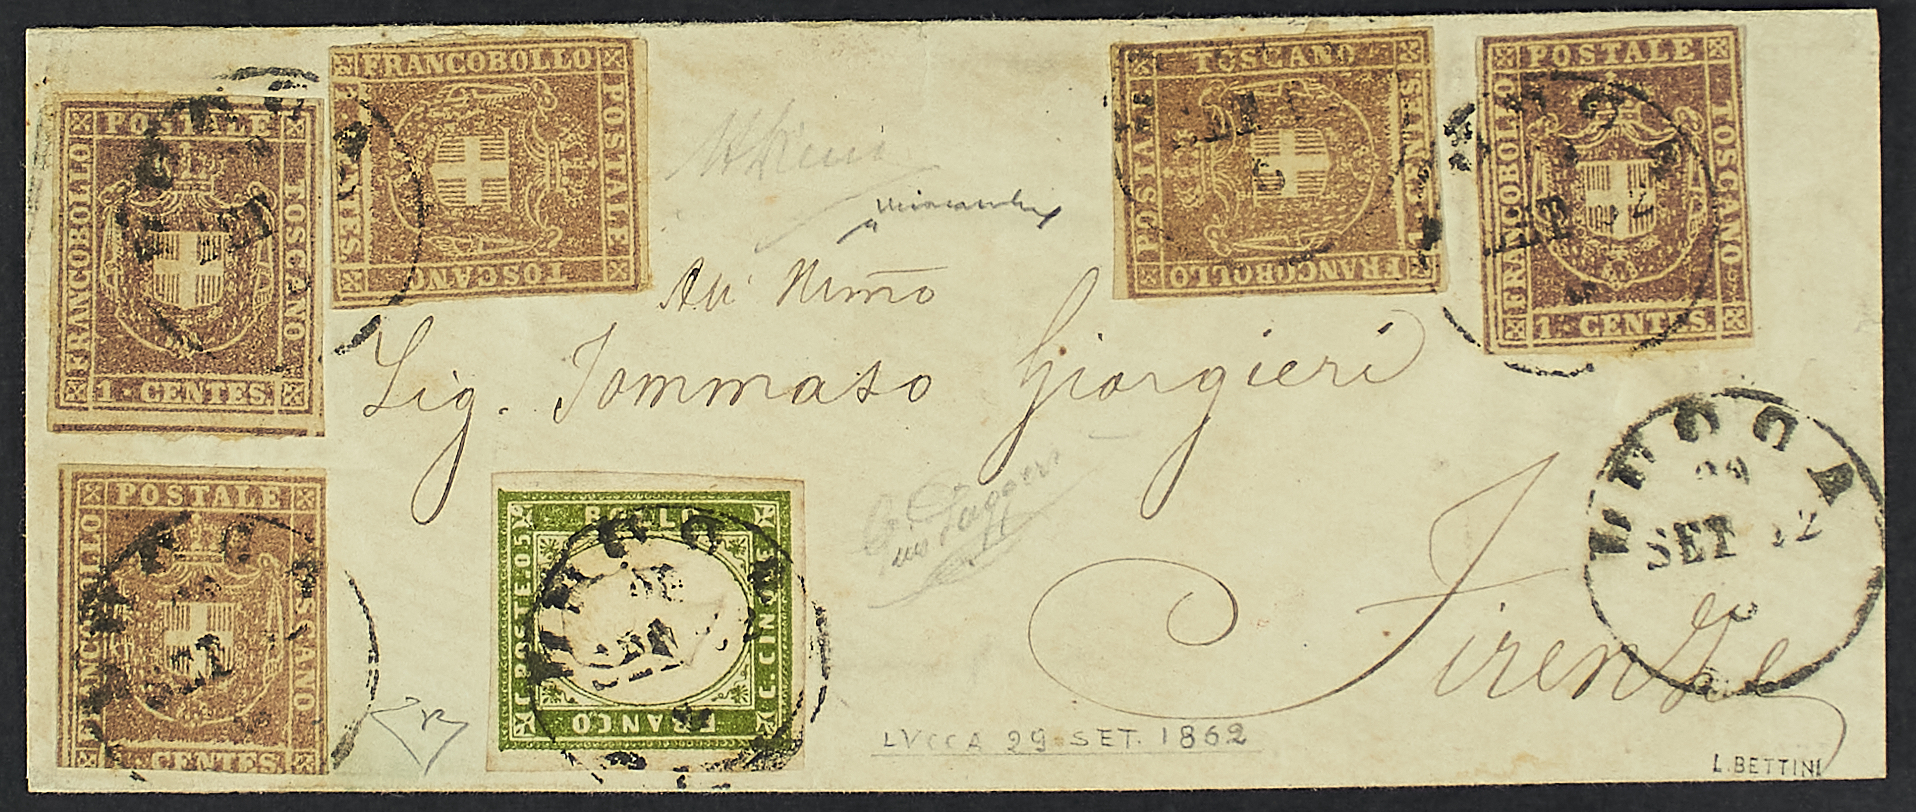 FRANCOBOLLO
POSTALE
TOSCANO
1 CENTES
TOSCANO
POSTALE
1 CENTES
FRANCOBOLLO
POSTALE
FRANCOBOLLO
TOSCANO
1 CENTES.
POSTALE
FRANCOBOLLO
TOSCANO
1 CENTES.
All'
Sig. Tommaso Giorgieri
Firenze
LUCCA
29
SET 62
POSTALE
FRANCOBOLLO
TOSCANO
1 CENTES.
BOLLO
C. POSTE. 05
C. CINQUE
FRANCO
LVCCA 29 SET. 1862
L. BETTINI